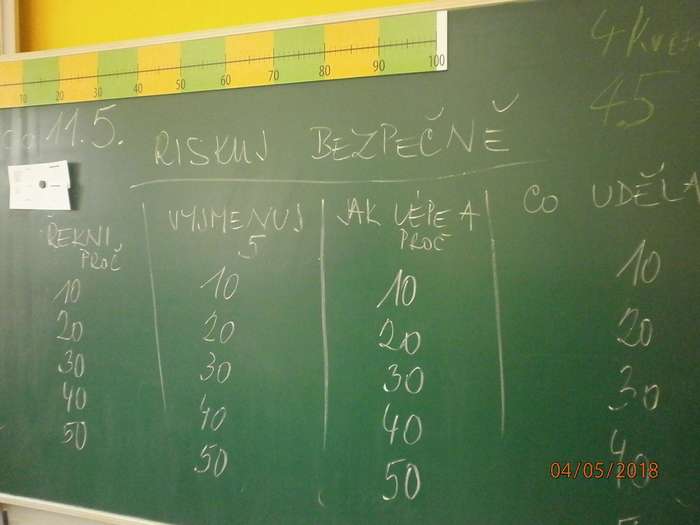 10 20 30 40 50 60 70 80 90 100
4 Kvě
4.5
do 11.5.
RISKUJ BEZPEČNĚ
ŘEKNI PROČ
10
20
30
40
50
VYJMENUJ 5
10
20
30
40
50
JAK LÉPE A PROČ
10
20
30
40
50
CO UDĚLA
10
20
30
40
04/05/2018